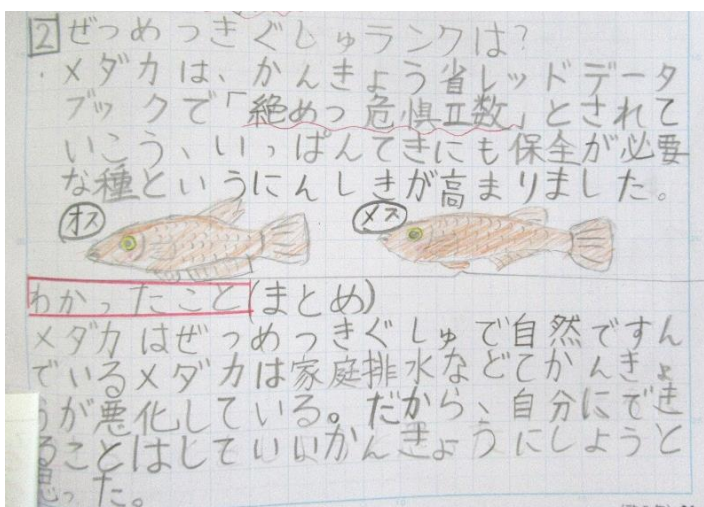 2 ぜつめつきぐしゅランクは?
・メダカは、かんきょう省レッドデータ
ブックで「絶めつ危惧Ⅱ数」とされて
いこう、いっぱんてきにも保全が必要
な種というにんしきが高まりました。
オス メス
わかったこと(まとめ)
メダカはぜつめつきぐしゅで自然ですん
でいるメダカは家庭排水などてかんきょ
うが悪化している。だから、自分にでき
ることはしていいかんきょうにしようと
思った。